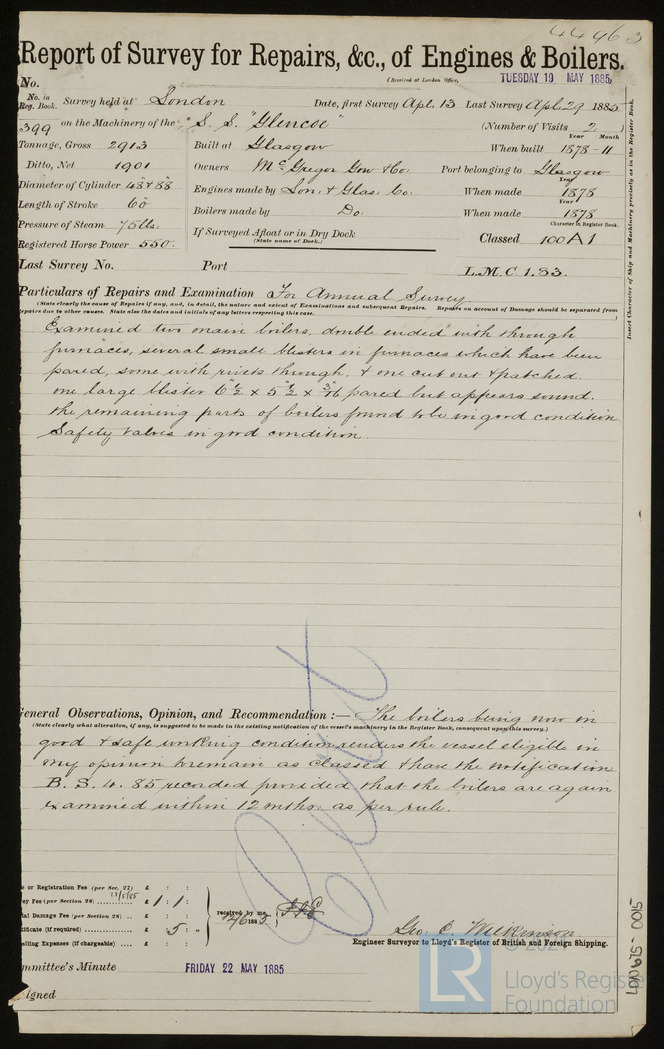 44963
Report of Survey for Repairs, &c., of Engines & Boilers.
(Received at London Office, TUESDAY 19 MAY 1885
No.
No. in Reg. Book. Survey held at London Date, first Survey Apl. 13 Last Survey Apl. 29 1885
399 on the Machinery of the S. S. "Glencoe" (Number of Visits 2
Year Month
Tonnage, Gross 2913 Built at Glasgow When built 1878-11
Ditto, Net 1901 Owners McGregor Gow & Co. Port belonging to Glasgow
Year
Diameter of Cylinder 48 & 88 Engines made by Lon. & Glas. Co. When made 1878
Year
Length of Stroke 60 Boilers made by Do. When made 1878
Pressure of Steam 75 lbs. If Surveyed Afloat or in Dry Dock
(State name of Dock.)
Character in Register Book.
Registered Horse Power 550. Classed 100 A1
Last Survey No. Port L.M.C 1.83.
Insert Character of Ship and Machinery precisely as in the Register Book.
Particulars of Repairs and Examination For Annual Survey
(State clearly the cause of Repairs if any, and, in detail, the nature and extent of Examinations and subsequent Repairs. Repairs on account of Damage should be separated from
repairs due to other causes. State also the dates and initials of any letters respecting this case. )
Examined two main boilers, double ended with through
furnaces, several small blisters in furnaces which have been
pared, some with rivets through, & one cut out & patched.
one large blister 6½" x 5½" x 3/16" pared but appears sound.
the remaining parts of boilers found to be in good condition
Safety valves in good condition.
General Observations, Opinion, and Recommendation :— The boilers being now in
(State clearly what alteration, if any, is suggested to be made in the existing notification of the vessel's machinery in the Register Book, consequent upon this survey.)
good & safe working condition renders the vessel eligible in
my opinion to remain as classed & have the notification
B. S. 4. 85 recorded provided that the boilers are again
examined within 12 mths. as per rule.
e or Registration Fee (per Sec. 27) £ : :
23/5/85
ey Fee (per Section 28) £ 1 : 1 :
ial Damage Fee (per Section 28) £ : :
tificate (if required) £ : 5 :
elling Expenses (if chargeable) £ : :
received by me,
2/6 1885
Geo. C. Wilkinson
Engineer Surveyor to Lloyd's Register of British and Foreign Shipping.
mmittee's Minute FRIDAY 22 MAY 1885
signed
LR
Lloyd's Register
Foundation
LON675-0015